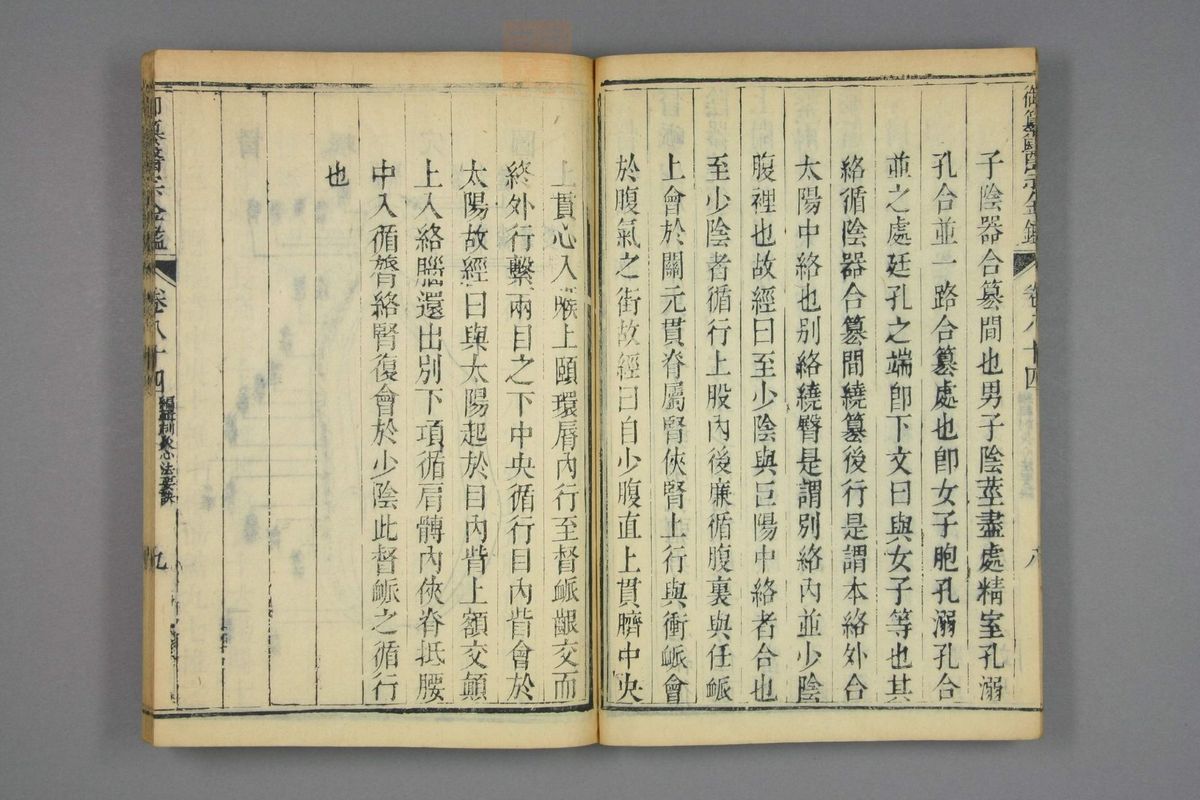 御纂醫宗金鑑
卷八十四
八
子陰器合篡間也男子陰莖盡處精室孔溺
孔合並一路合篡處也卽女子胞孔溺孔合
並之處廷孔之端卽下文曰與女子等也其
絡循陰器合篡間繞篡後行是謂本絡外合
太陽中絡也別絡繞臀是謂別絡內並少陰
腹裡也故經曰至少陰與巨陽中絡者合也
至少陰者循行上股內後廉循腹裏與任脈
上會於關元貫脊屬腎俠腎上行與衝脈會
於腹氣之街故經曰自少腹直上貫臍中央
上貫心入喉上頤環脣內行至督脈齦交而
終外行繫兩目之下中央循行目內眥會於
太陽故經曰與太陽起於目內眥上額交顛
上入絡腦還出別下項循肩髆內俠脊抵腰
中入循膂絡腎復會於少陰此督脈之循行
也
御纂醫宗金鑑
卷八十四
編輯刺灸心法要訣
九